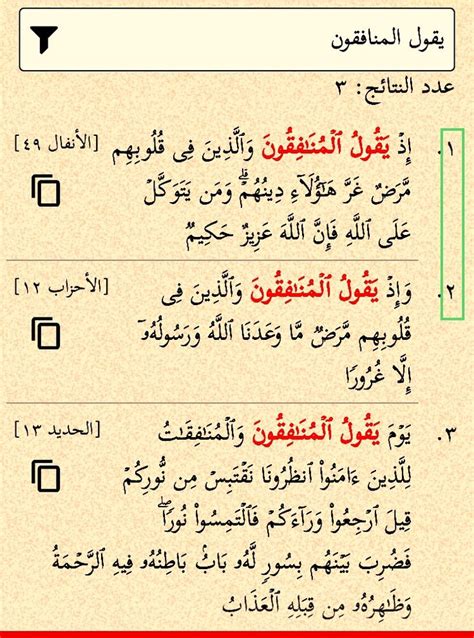 يقول المنافقون
عدد النتائج: ٣
١. إِذْ يَقُولُ ٱلْمُنَٰفِقُونَ وَٱلَّذِينَ فِى قُلُوبِهِم [الأنفال ٤٩]
مَّرَضٌ غَرَّ هَٰٓؤُلَآءِ دِينُهُمْ ۗ وَمَن يَتَوَكَّلْ
عَلَى ٱللَّهِ فَإِنَّ ٱللَّهَ عَزِيزٌ حَكِيمٌ
٢. وَإِذْ يَقُولُ ٱلْمُنَٰفِقُونَ وَٱلَّذِينَ فِى [الأحزاب ١٢]
قُلُوبِهِم مَّرَضٌ مَّا وَعَدَنَا ٱللَّهُ وَرَسُولُهُۥٓ
إِلَّا غُرُورًا
٣. يَوْمَ يَقُولُ ٱلْمُنَٰفِقُونَ وَٱلْمُنَٰفِقَٰتُ [الحديد ١٣]
لِلَّذِينَ ءَامَنُوا۟ ٱنظُرُونَا نَقْتَبِسْ مِن نُّورِكُمْ
قِيلَ ٱرْجِعُوا۟ وَرَآءَكُمْ فَٱلْتَمِسُوا۟ نُورًا ۖ
فَضُرِبَ بَيْنَهُم بِسُورٍ لَّهُۥ بَابٌۢ بَاطِنُهُۥ فِيهِ ٱلرَّحْمَةُ
وَظَٰهِرُهُۥ مِن قِبَلِهِ ٱلْعَذَابُ